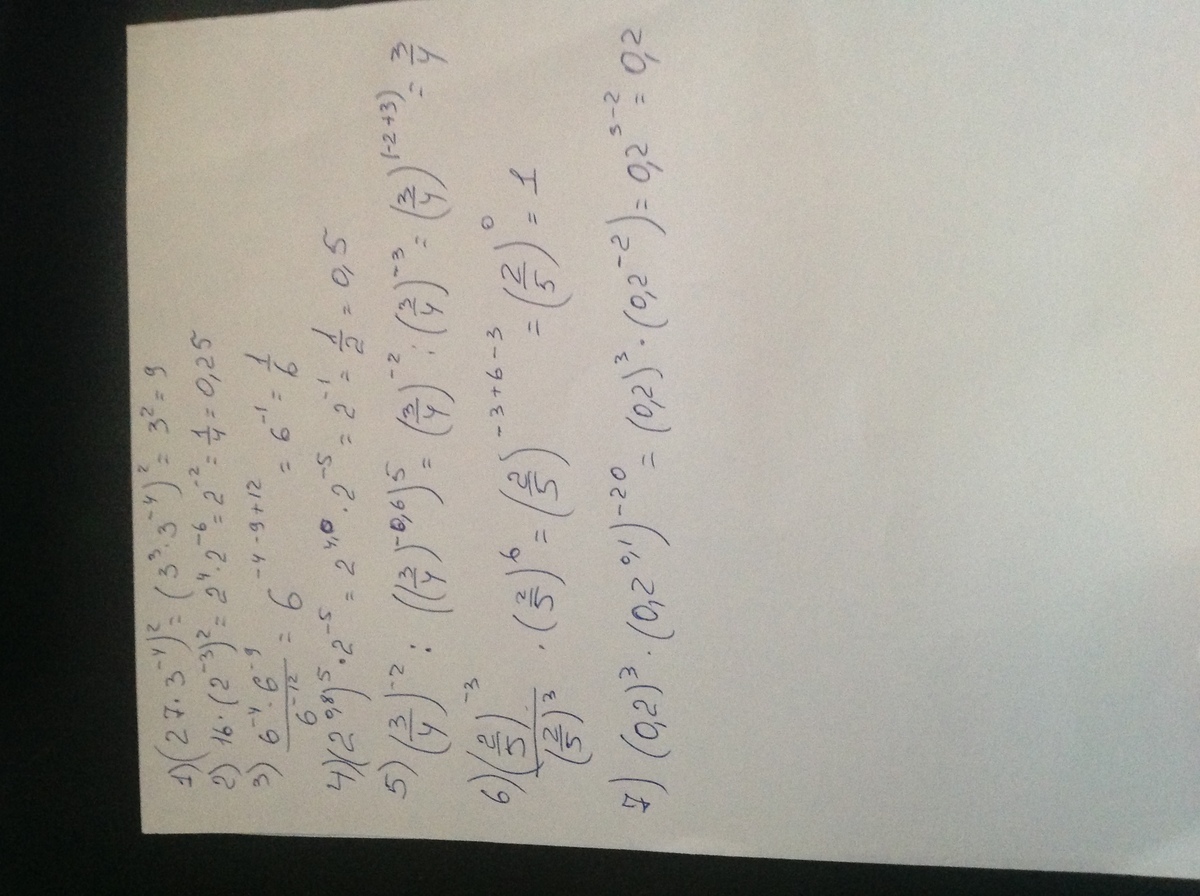 1) (27·3⁻⁴)² = (3³·3⁻⁴)² = 3² = 9
2) 16·(2⁻³)² = 2⁴·2⁻⁶ = 2⁻² = 1/4 = 0,25
3) (6⁻⁴·6⁻⁹)/6⁻¹² = 6⁻⁴⁻⁹⁺¹² = 6⁻¹ = 1/6
4) (2^0,8)⁵·2⁻⁵ = 2^4,0·2⁻⁵ = 2⁻¹ = 1/2 = 0,5
5) (3/4)⁻² : ((3/4)^-0,6)⁵ = (3/4)⁻² : (3/4)⁻³ = (3/4)^(-2+3) = 3/4
6) (2/5)⁻³/(2/5)³ · (2/5)⁶ = (2/5)^-3+6-3 = (2/5)⁰ = 1
7) (0,2)³·(0,2^0,1)⁻²⁰ = (0,2)³·(0,2⁻²) = 0,2³⁻² = 0,2